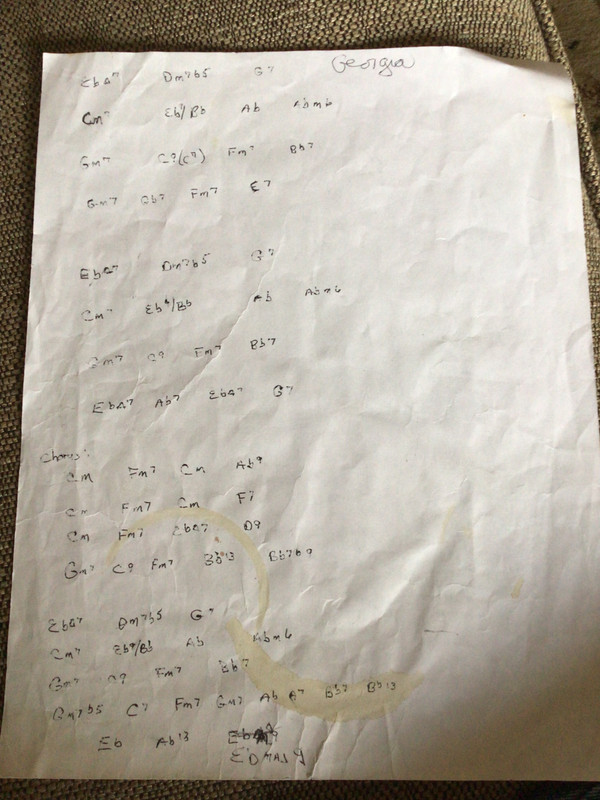 Georgia
EbΔ7 Dm7b5 G7
Cm7 Eb9/Bb Ab Abm6
Gm7 C9(C7) Fm7 Bb7
Gm7 Fm7 E7
EbΔ7 Dm7b5 G7
Cm7 Eb9/Bb Ab Abm6
Gm7 C9 Fm7 Bb7
EbΔ7 Ab7 EbΔ7 G7
Chorus:
Cm Fm7 Cm Ab9
Cm Fm7 Cm F7
Cm Fm7 EbΔ7 D9
Gm7 C9 Fm7 Bb13 Bb7b9
EbΔ7 Dm7b5 G7
Cm7 Eb9/Bb Ab Abm6
Gm7 C9 Fm7 Bb7
Gm7b5 C7 Fm7 Gm7 Ab A7 Bb7 Bb13
Eb Ab13